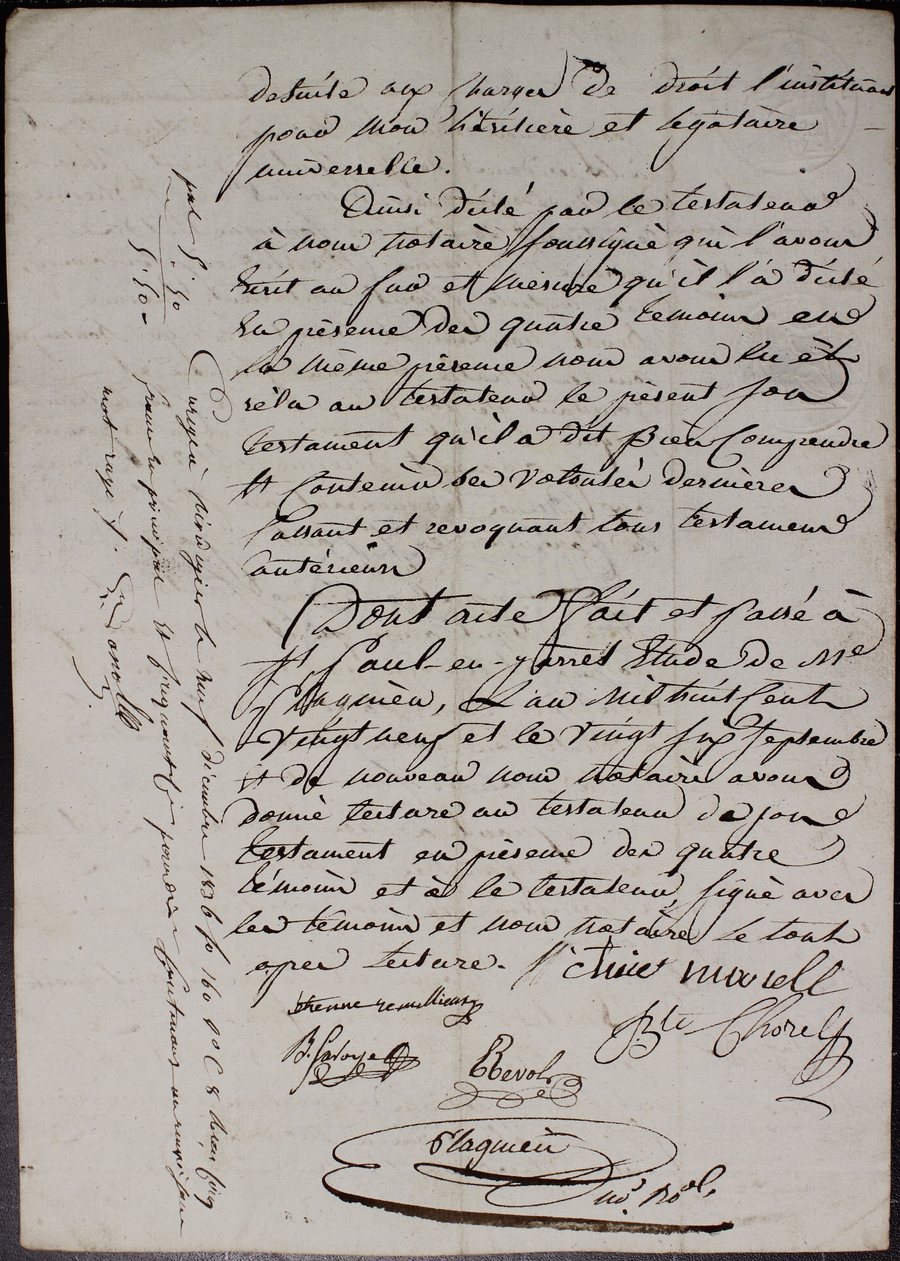 de suite aux charges de droit l'instituant
pour mon héritière et légataire
universelle.
Ainsi dicté par le testateur
à nous notaire soussigné qui l'avons
écrit au fur et mesure qu'il l'a dicté
en présence des quatre témoins en
la même présence nous avons lu et
relu au testateur le présent son
testament qu'il a dit bien comprendre
et contenir ses volontés dernières
cassant et revoquant tous testamens
antérieurs
Dont acte fait et passé à
St Paul-en-Jarrest Etude de Me
Plagnieu, L'an mil huit cent
vingt neuf et le vingt six septembre
et de nouveau nous notaire avons
donné lecture au testateur de son
testament en présence des quatre
témoins et a le testateur, signé avec
les témoins et nous notaire le tout
après lecture.
morell
etienne remillieux
Bte Chorel
B. Savoye
Revol
Plagnieu
no. Roal.
pal 5.50
5.50
Enregé à Rivedegier le neuf décembre 1836 fo 160 Vo C 8 Reçu cinq
francs en principal et cinquante cmes pour dixe
mot rayé